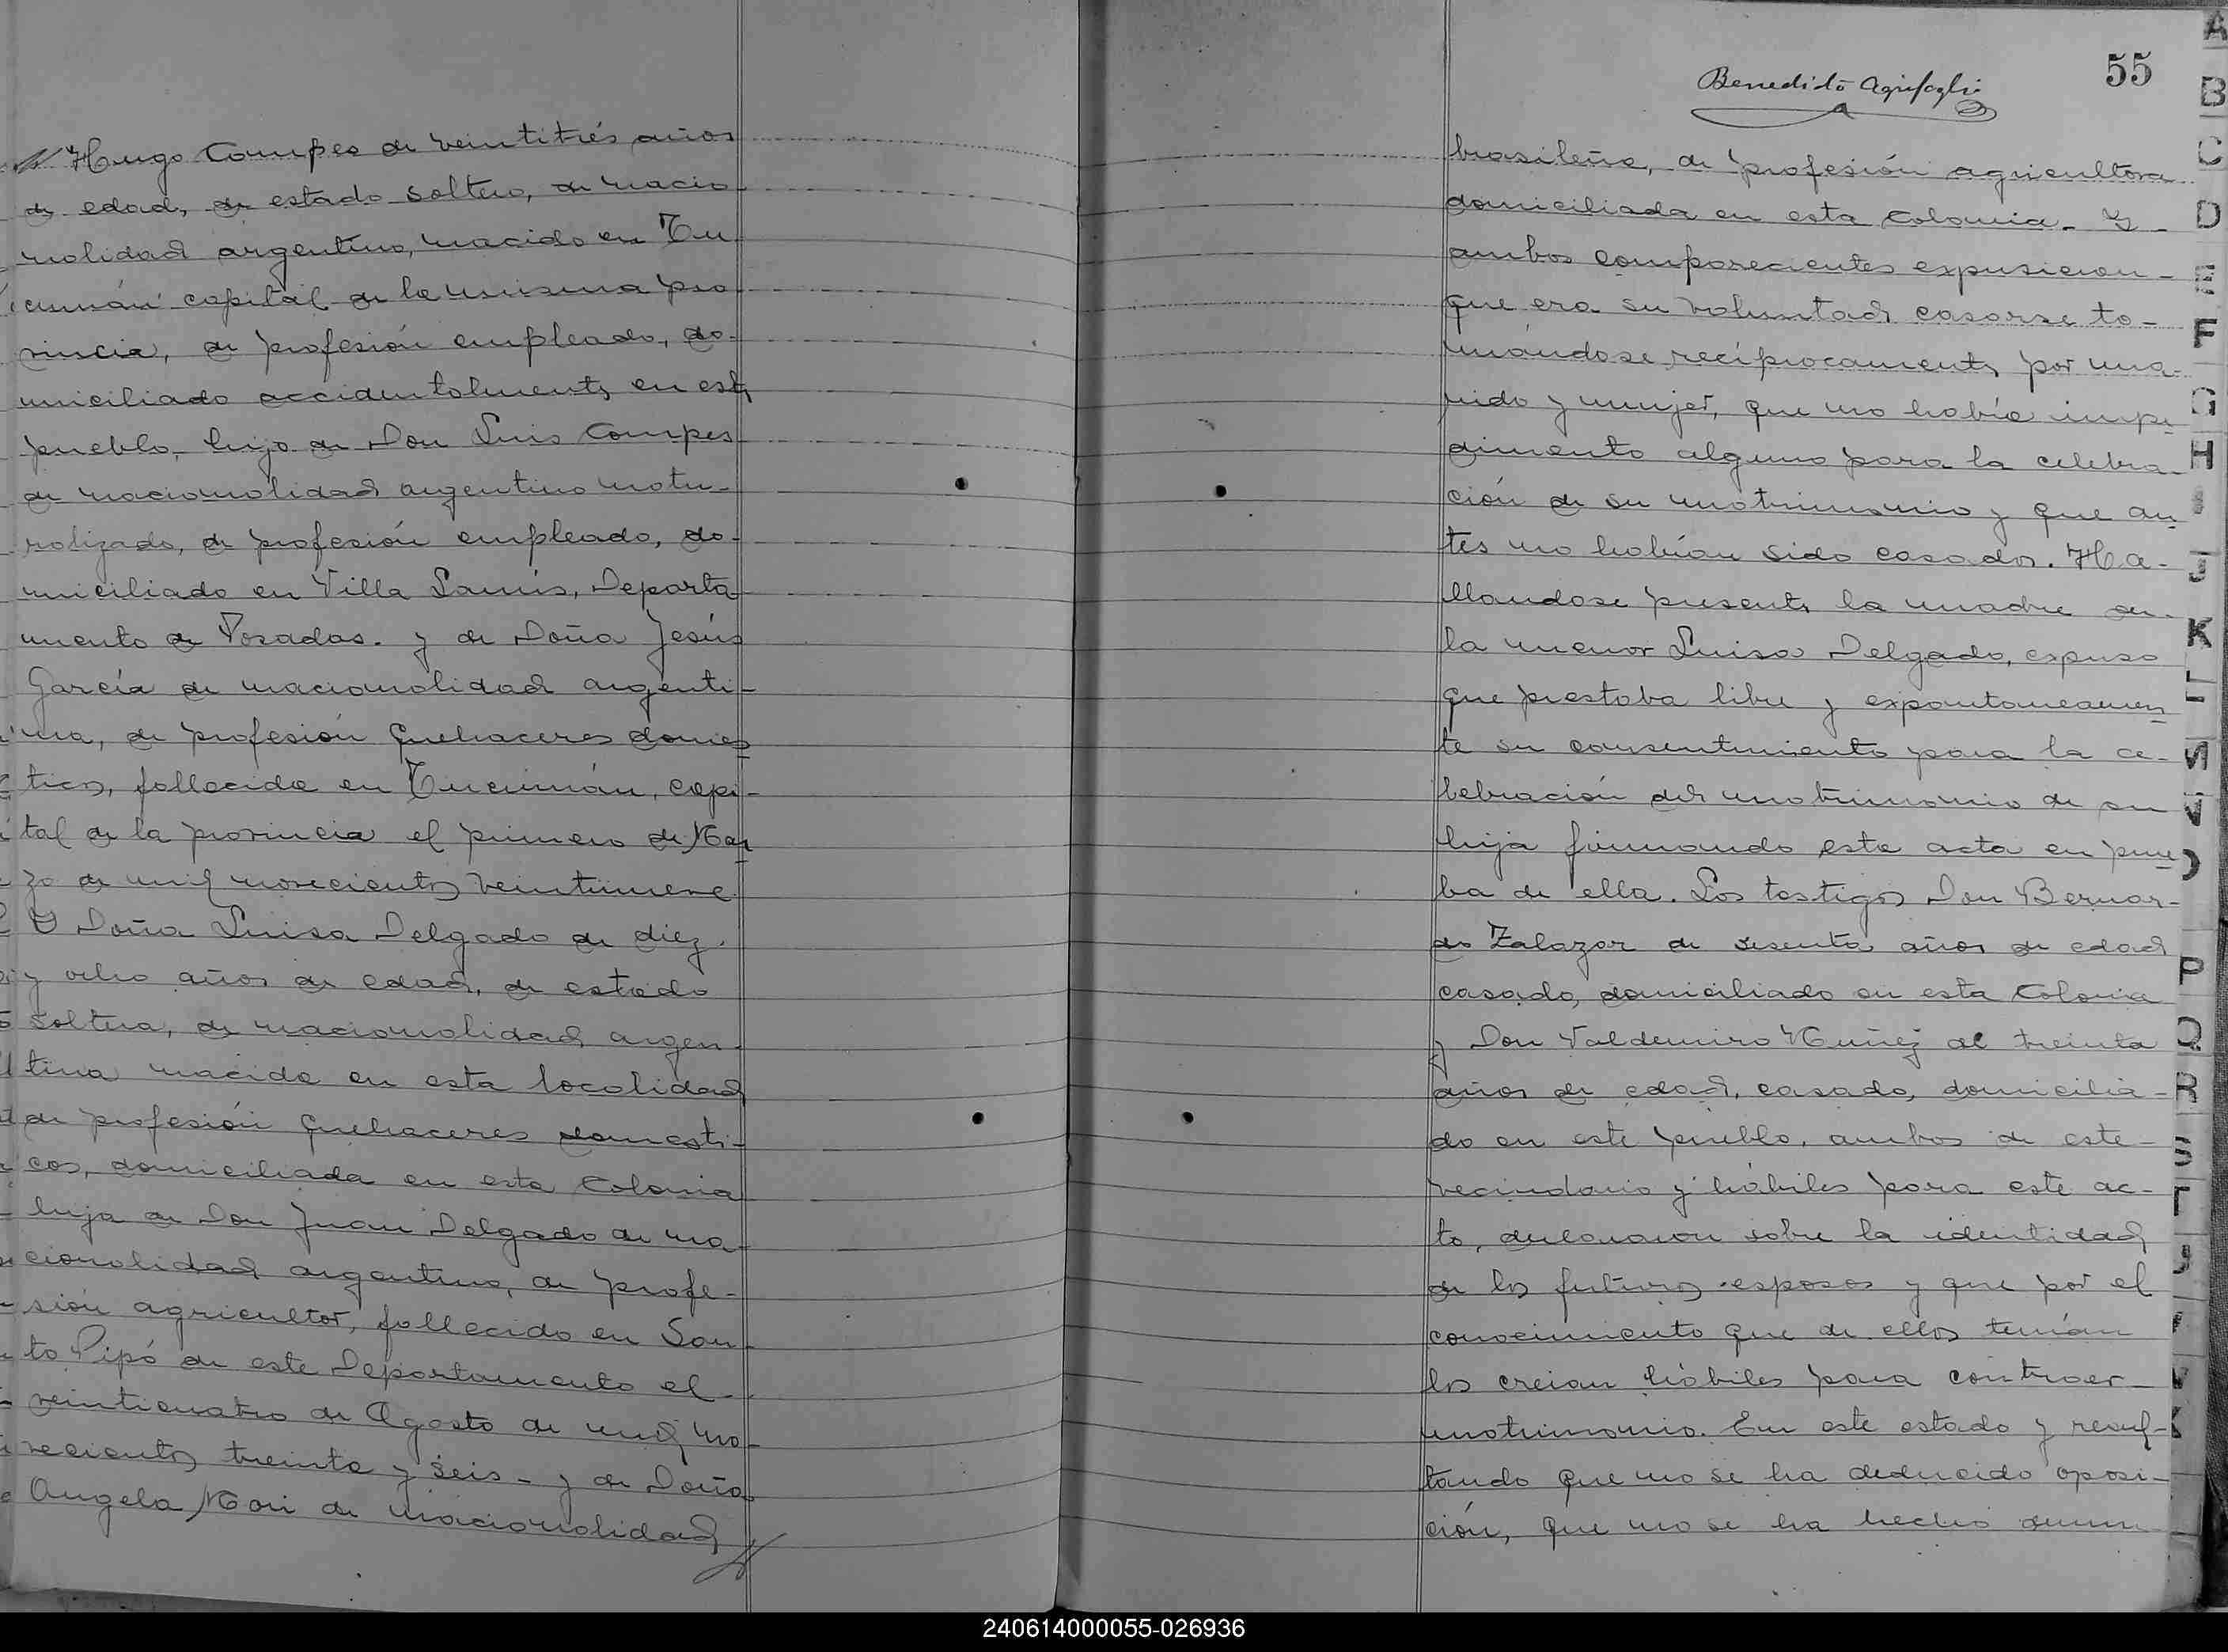 Hugo Compes de veintitrés años
de edad, de estado soltero, de nacio
nalidad argentino, nacido en Tu
cumán capital de la misma pro
vincia, de profesión empleado, do-
miciliado accidentalmente en este
pueblo, hijo de Don Luis Compes
de nacionalidad argentino natu-
ralizado, de profesión empleado, do-
miciliado en Villa Lanús, Departa
mento de Posadas. y de Doña Jesús
García de nacionalidad argenti-
na, de profesión Quehaceres domes
ticos, fallecida en Tucumán, capi-
tal de la provincia el primero de Mar
zo de mil novecientos veintinueve.
Y Doña Luisa Delgado de diez
y ocho años de edad, de estado
soltera, de nacionalidad argen-
tina nacida en esta localidad
de profesión Quehaceres domesti-
cos, domiciliada en esta Colonia
hija de Don Juan Delgado de na-
cionalidad argentino, de profe-
sión agricultor, fallecido en San
to Pipó de este Departamento el
veinticuatro de Agosto de mil no-
vecientos treinta y seis - y de Doña
Angela Mari de nacionalidad
55
Benedicto
brasileña, de profesión agricultora
domiciliada en esta Colonia. Y
ambos comparecientes expusieron
que era su voluntad casarse to-
mándose recíprocamente por ma-
rido y mujer, que no había impe
dimento alguno para la celebra-
ción de su matrimonio y que an
tes no habían sido casados. Ha-
llandose presente la madre de
la menor Luisa Delgado, expuso
que prestaba libre y expontaneamen
te su consentimiento para la ce-
lebración del matrimonio de su
hija firmando esta acta en prue
ba de ella. Los testigos Don Bernar-
do Zalazar de sesenta años de edad
casado, domiciliado en esta Colonia
y Don Valdemiro Nuñez de treinta
años de edad, casado, domicilia-
do en este pueblo, ambos de este
vecindario y hábiles para este ac-
to, declararon sobre la identidad
de los futuros esposos y que por el
conocimiento que de ellos tenían
los creian hábiles para contraer
matrimonio. En este estado y resul-
tando que no se ha deducido oposi-
ción, que no se ha hecho denun
A
B
C
D
E
F
G
H
I
J
K
L
P
Q
R
S
T
240614000055-026936